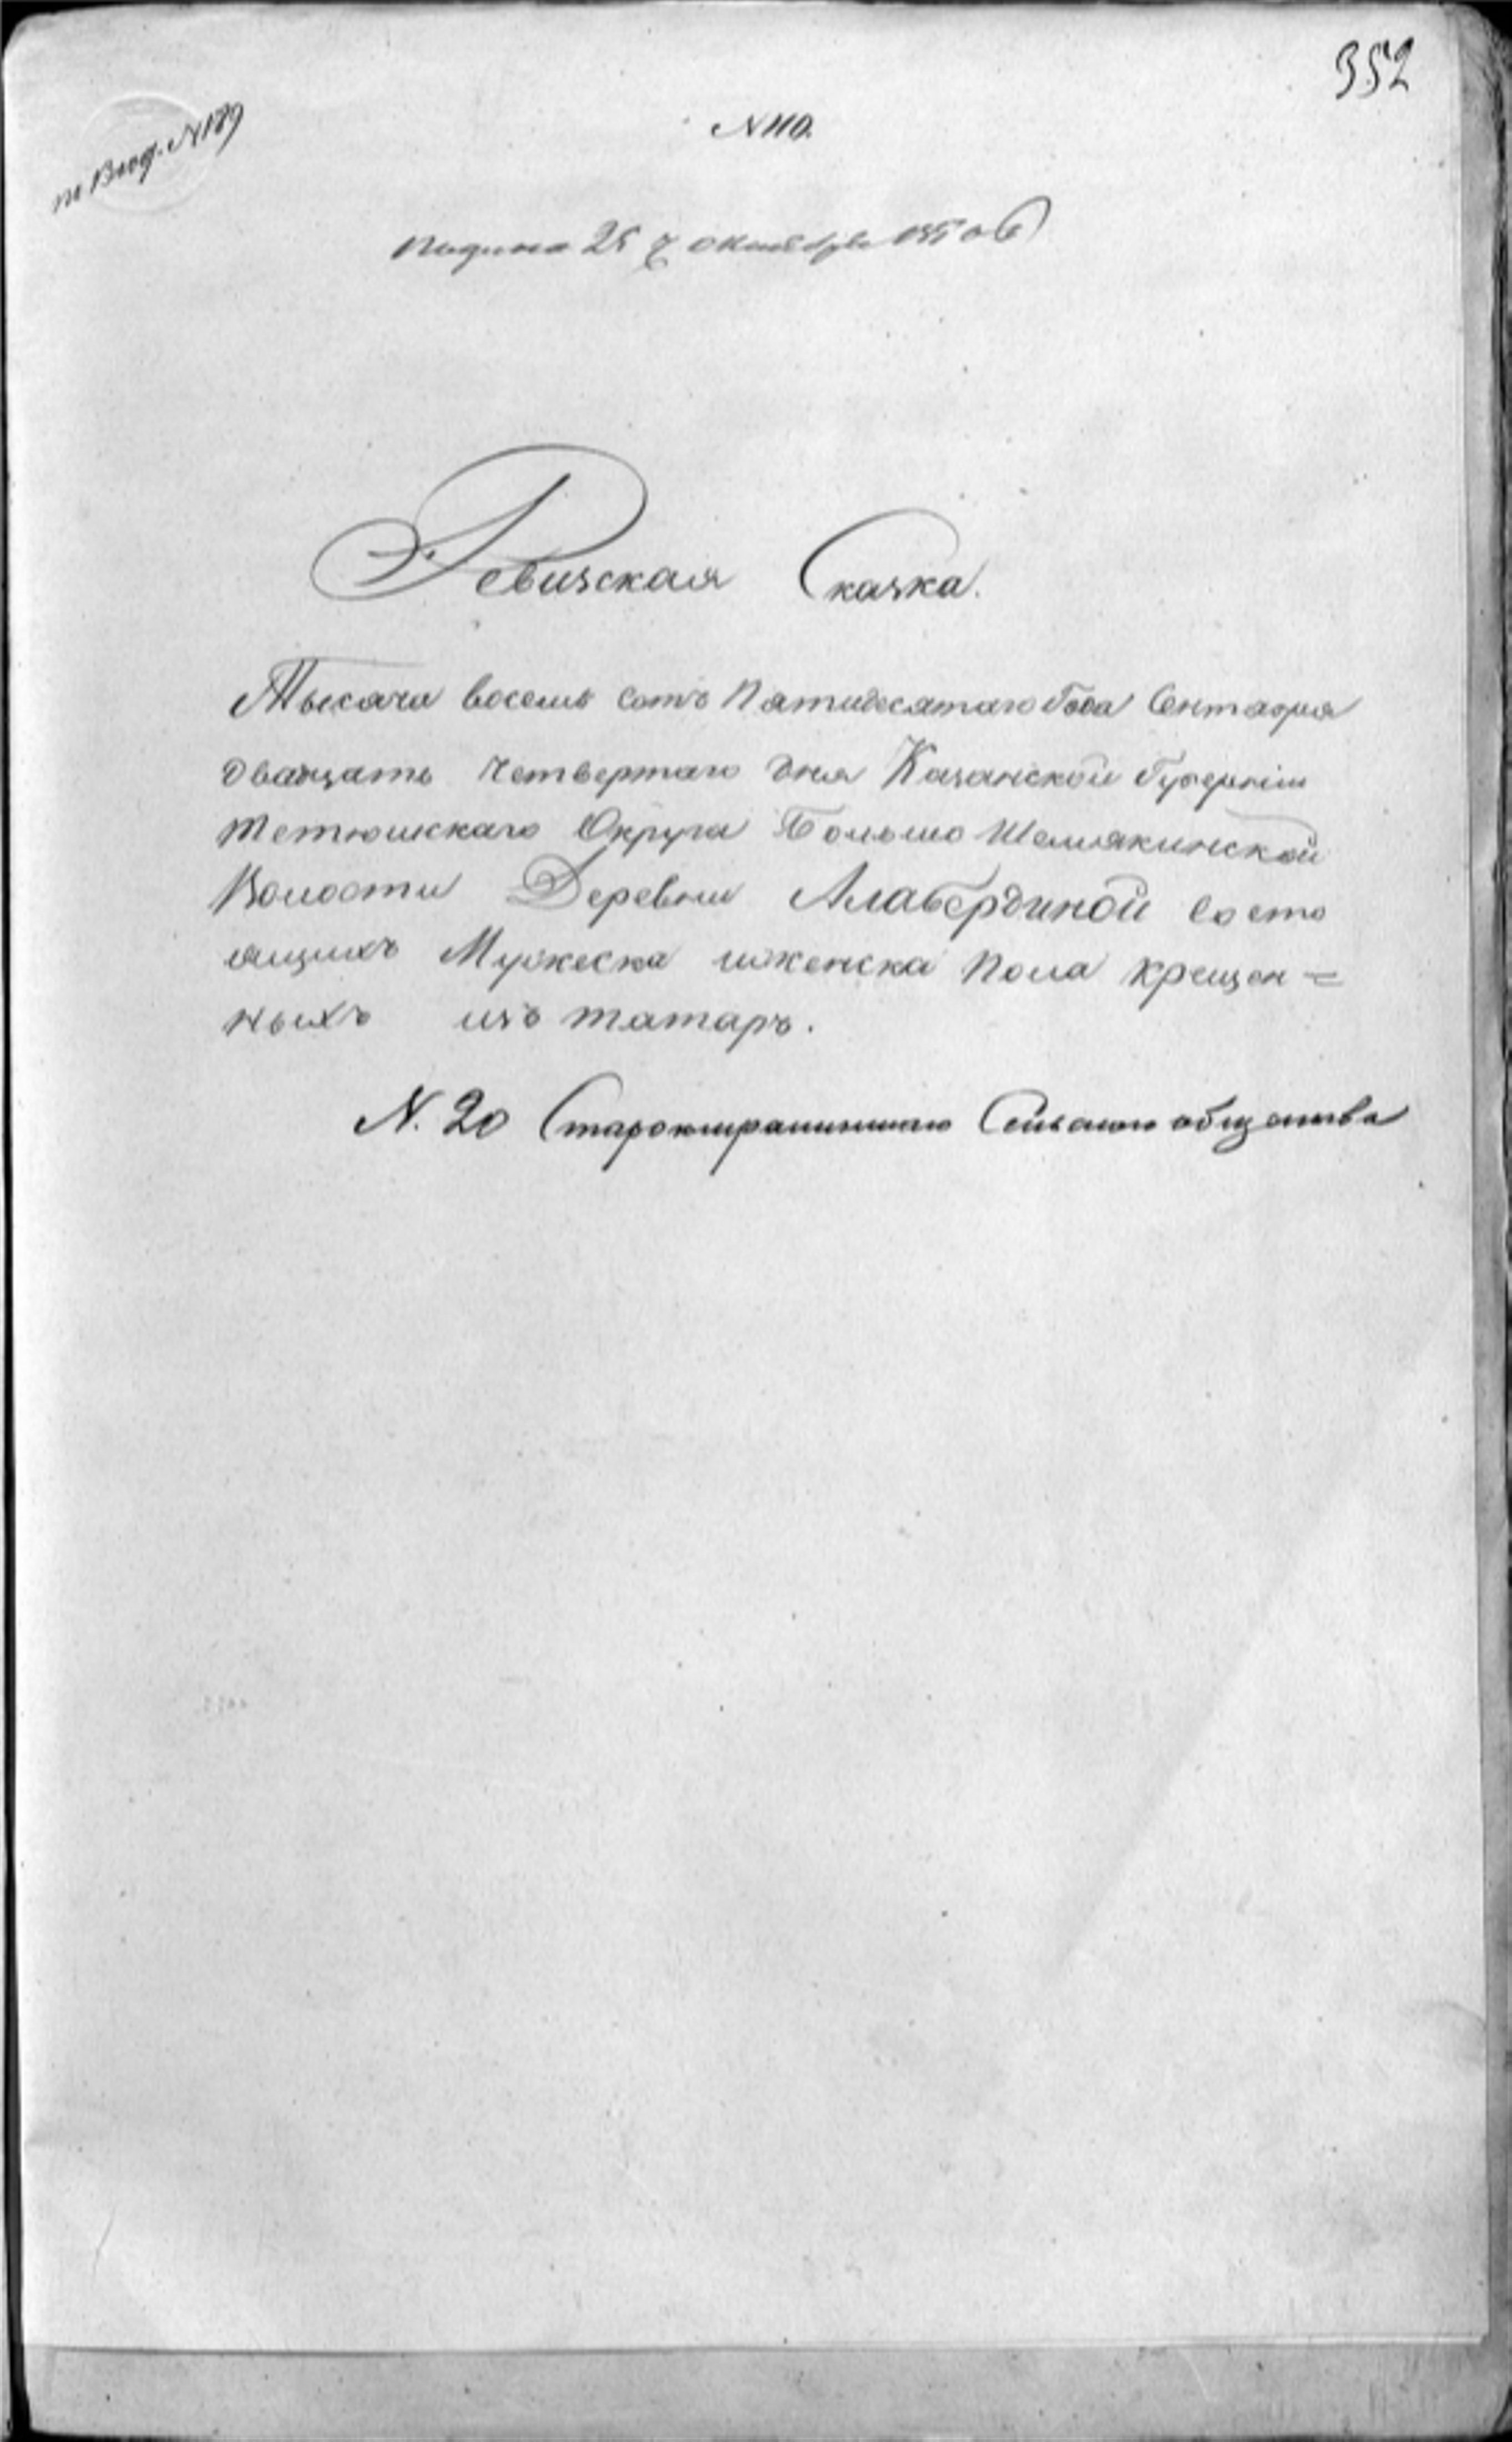 352
№ 110.
№ 189
Подана 25 Октября 1850 г
Ревизская Сказка.
Тысяча восемь сотъ Пятидесятаго Года Сентября
двадцать четвертаго дня Казанской Губернiи
Тетюшскаго Округа Больше Шемякинской
Волости Деревни Алабердиной состо
ящихъ Мужеска и женска пола крещен=
ныхъ изъ татаръ.
N. 20 Сельскаго общества